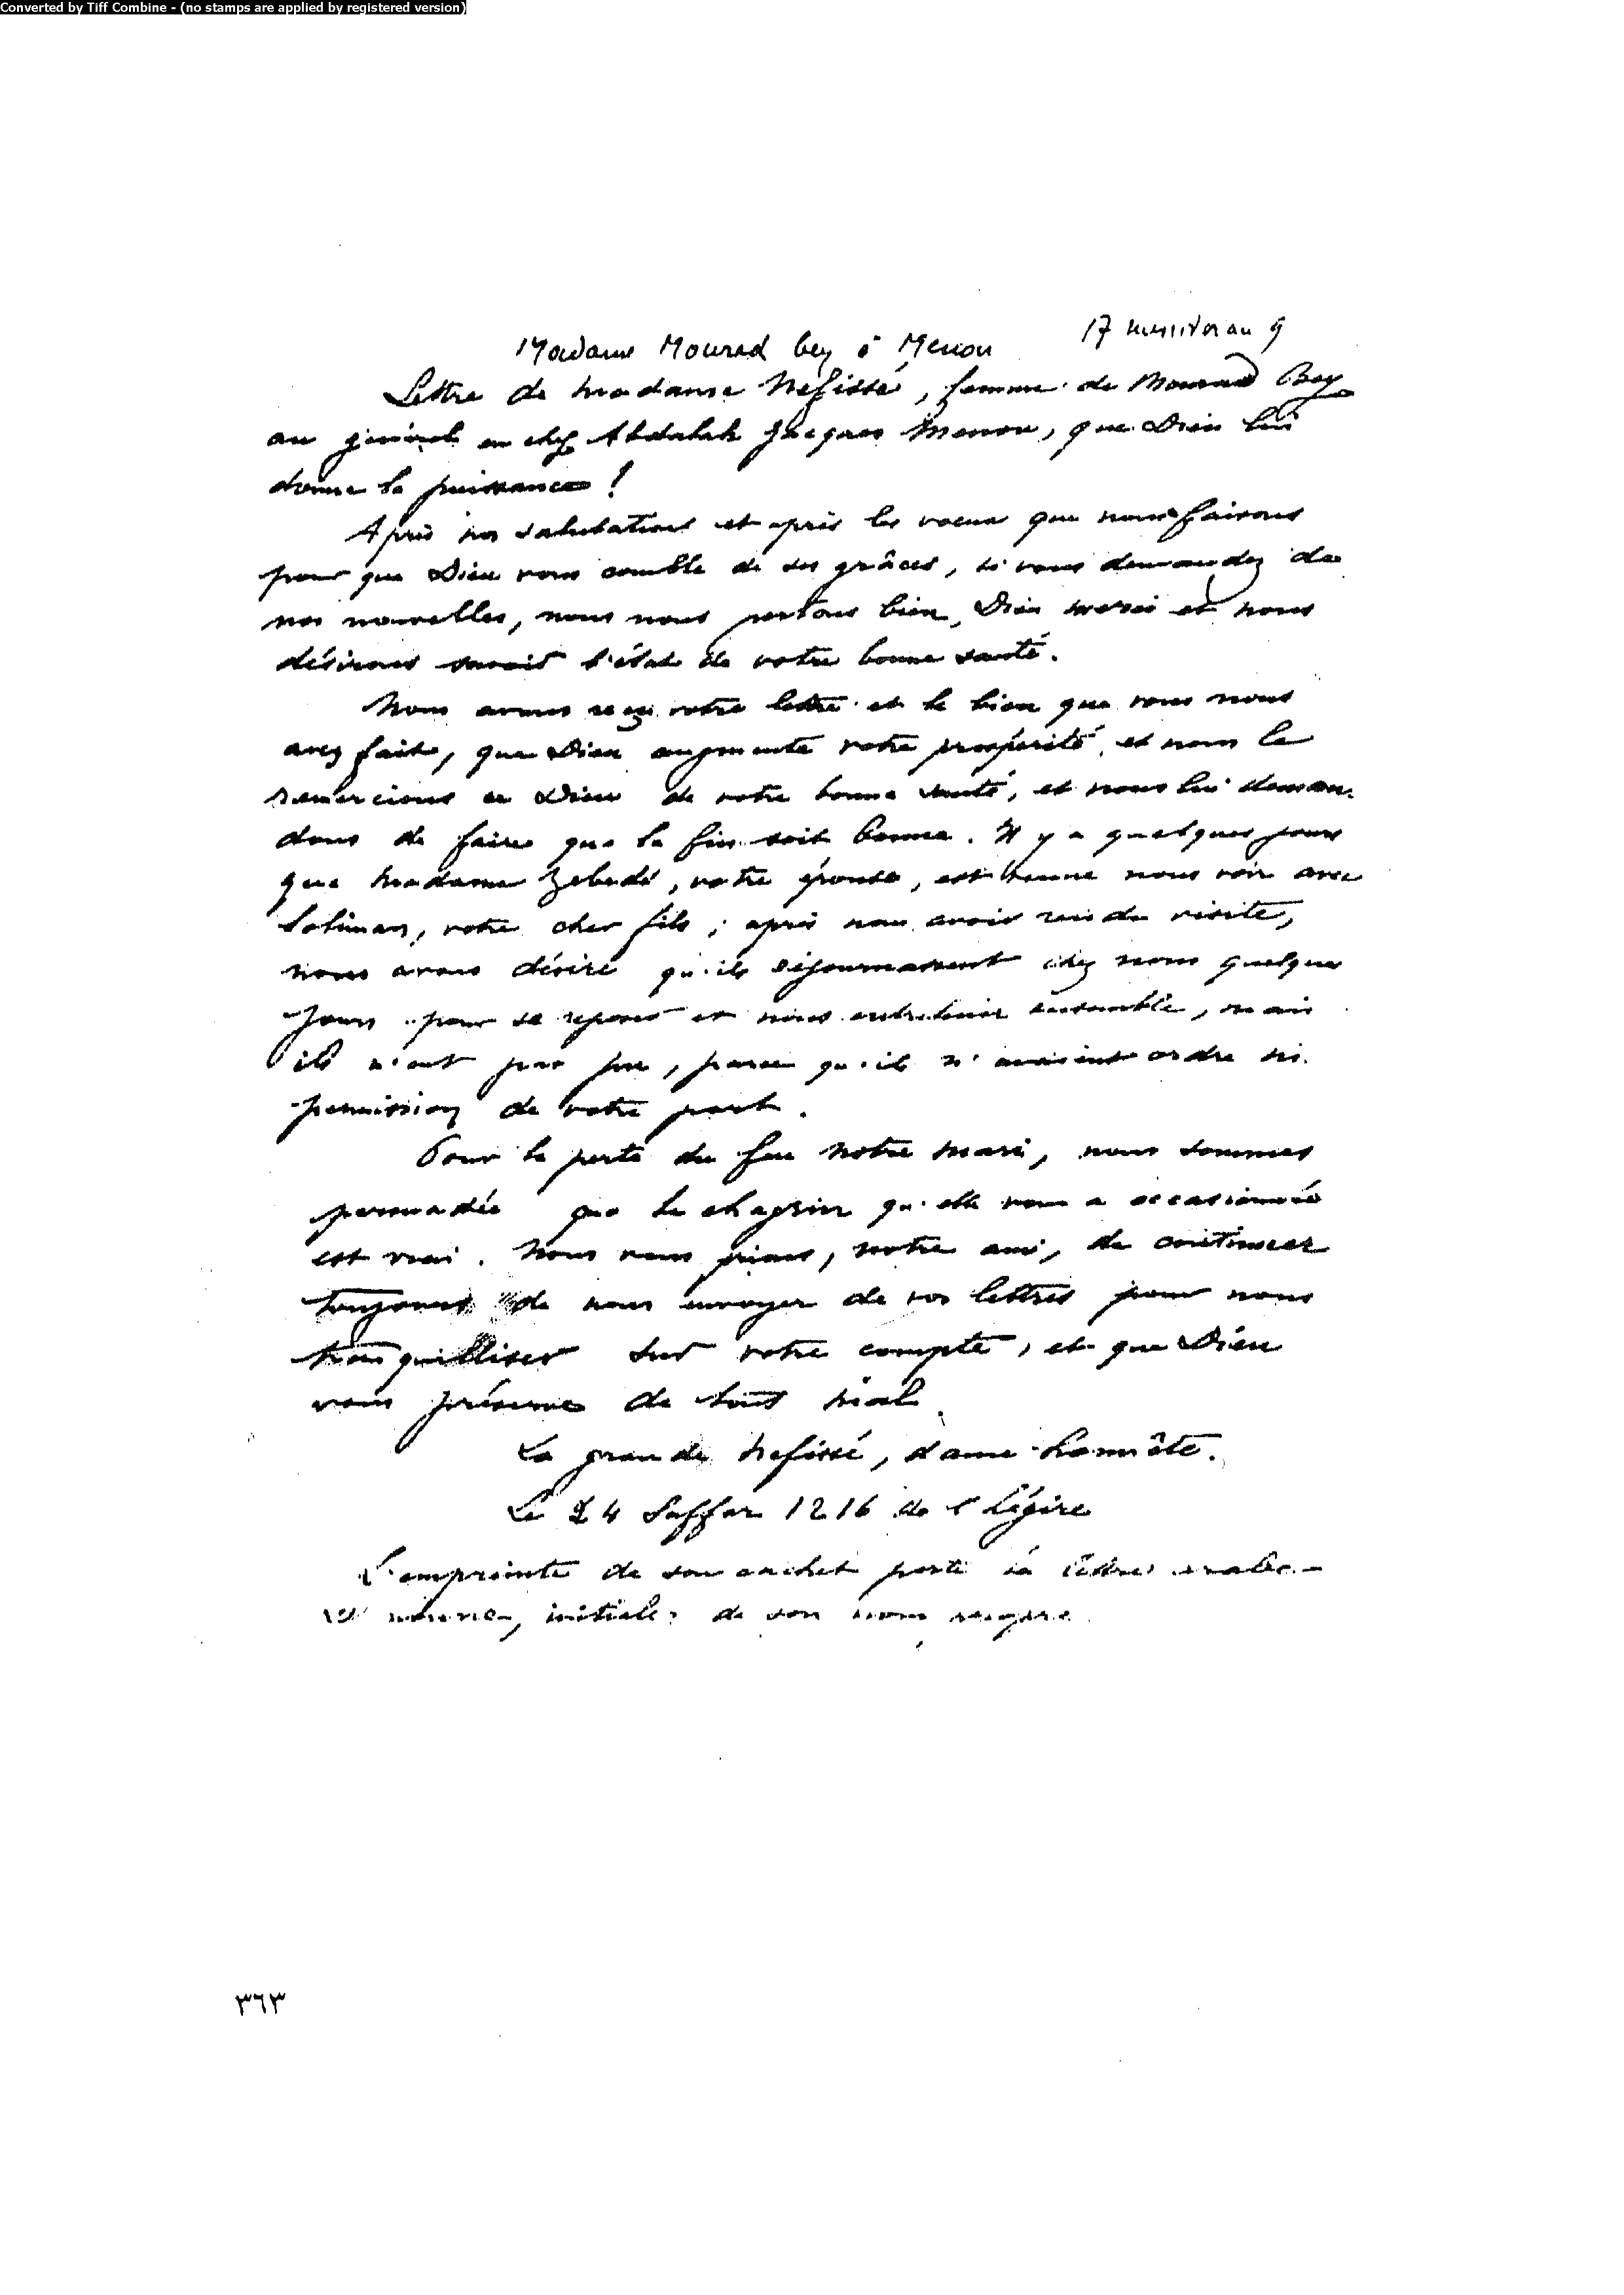 Converted by Tiff Combine - (no stamps are applied by registered version)
17 messidor an 9
Madame Mourad bey à Menou
Lettre de madame Nefissé, femme de Mourad Bey
au général en chef Abdalah Jacques Menou, que Dieu lui
donne la puissance !
Après nos salutations et après les voeux que nous faisons
pour que Dieu vous comble de ses grâces, si vous demandez de
nos nouvelles, nous nous portons bien, Dieu merci et nous
désirons savoir l'état de votre bonne santé.
Nous avons reçu votre lettre et le bien que vous nous
avez fait, que Dieu augmente votre prospérité, et nous le
remercions ce Dieu de votre bonne santé, et nous lui deman-
dons de faire que la fin soit bonne. Il y a quelques jours
que madame Zebedé, votre épouse, est venue nous voir avec
Soliman, votre cher fils ; après nous avoir rendu visite,
nous avons désiré qu'ils séjournassent chez nous quelque
jours pour se reposer et nous entretenir ensemble, mais
ils n'ont pas pu, parce qu'ils n'avaient ordre ni
permission de votre part.
Pour la perte du feu notre mari, nous sommes
persuadée que le chagrin qu'elle vous a occasionnée
est vrai. Nous vous prions, notre ami, de continuer
toujours de nous envoyer de vos lettres pour nous
tranquilliser sur votre compte, et que Dieu
vous préserve de tout mal.
La grande Nefissé, dame honnête.
Le 24 Saffar 1216 de l'hégire
L'empreinte de son cachet porte la lettre arabe
initiale de son nom
٣٦٣